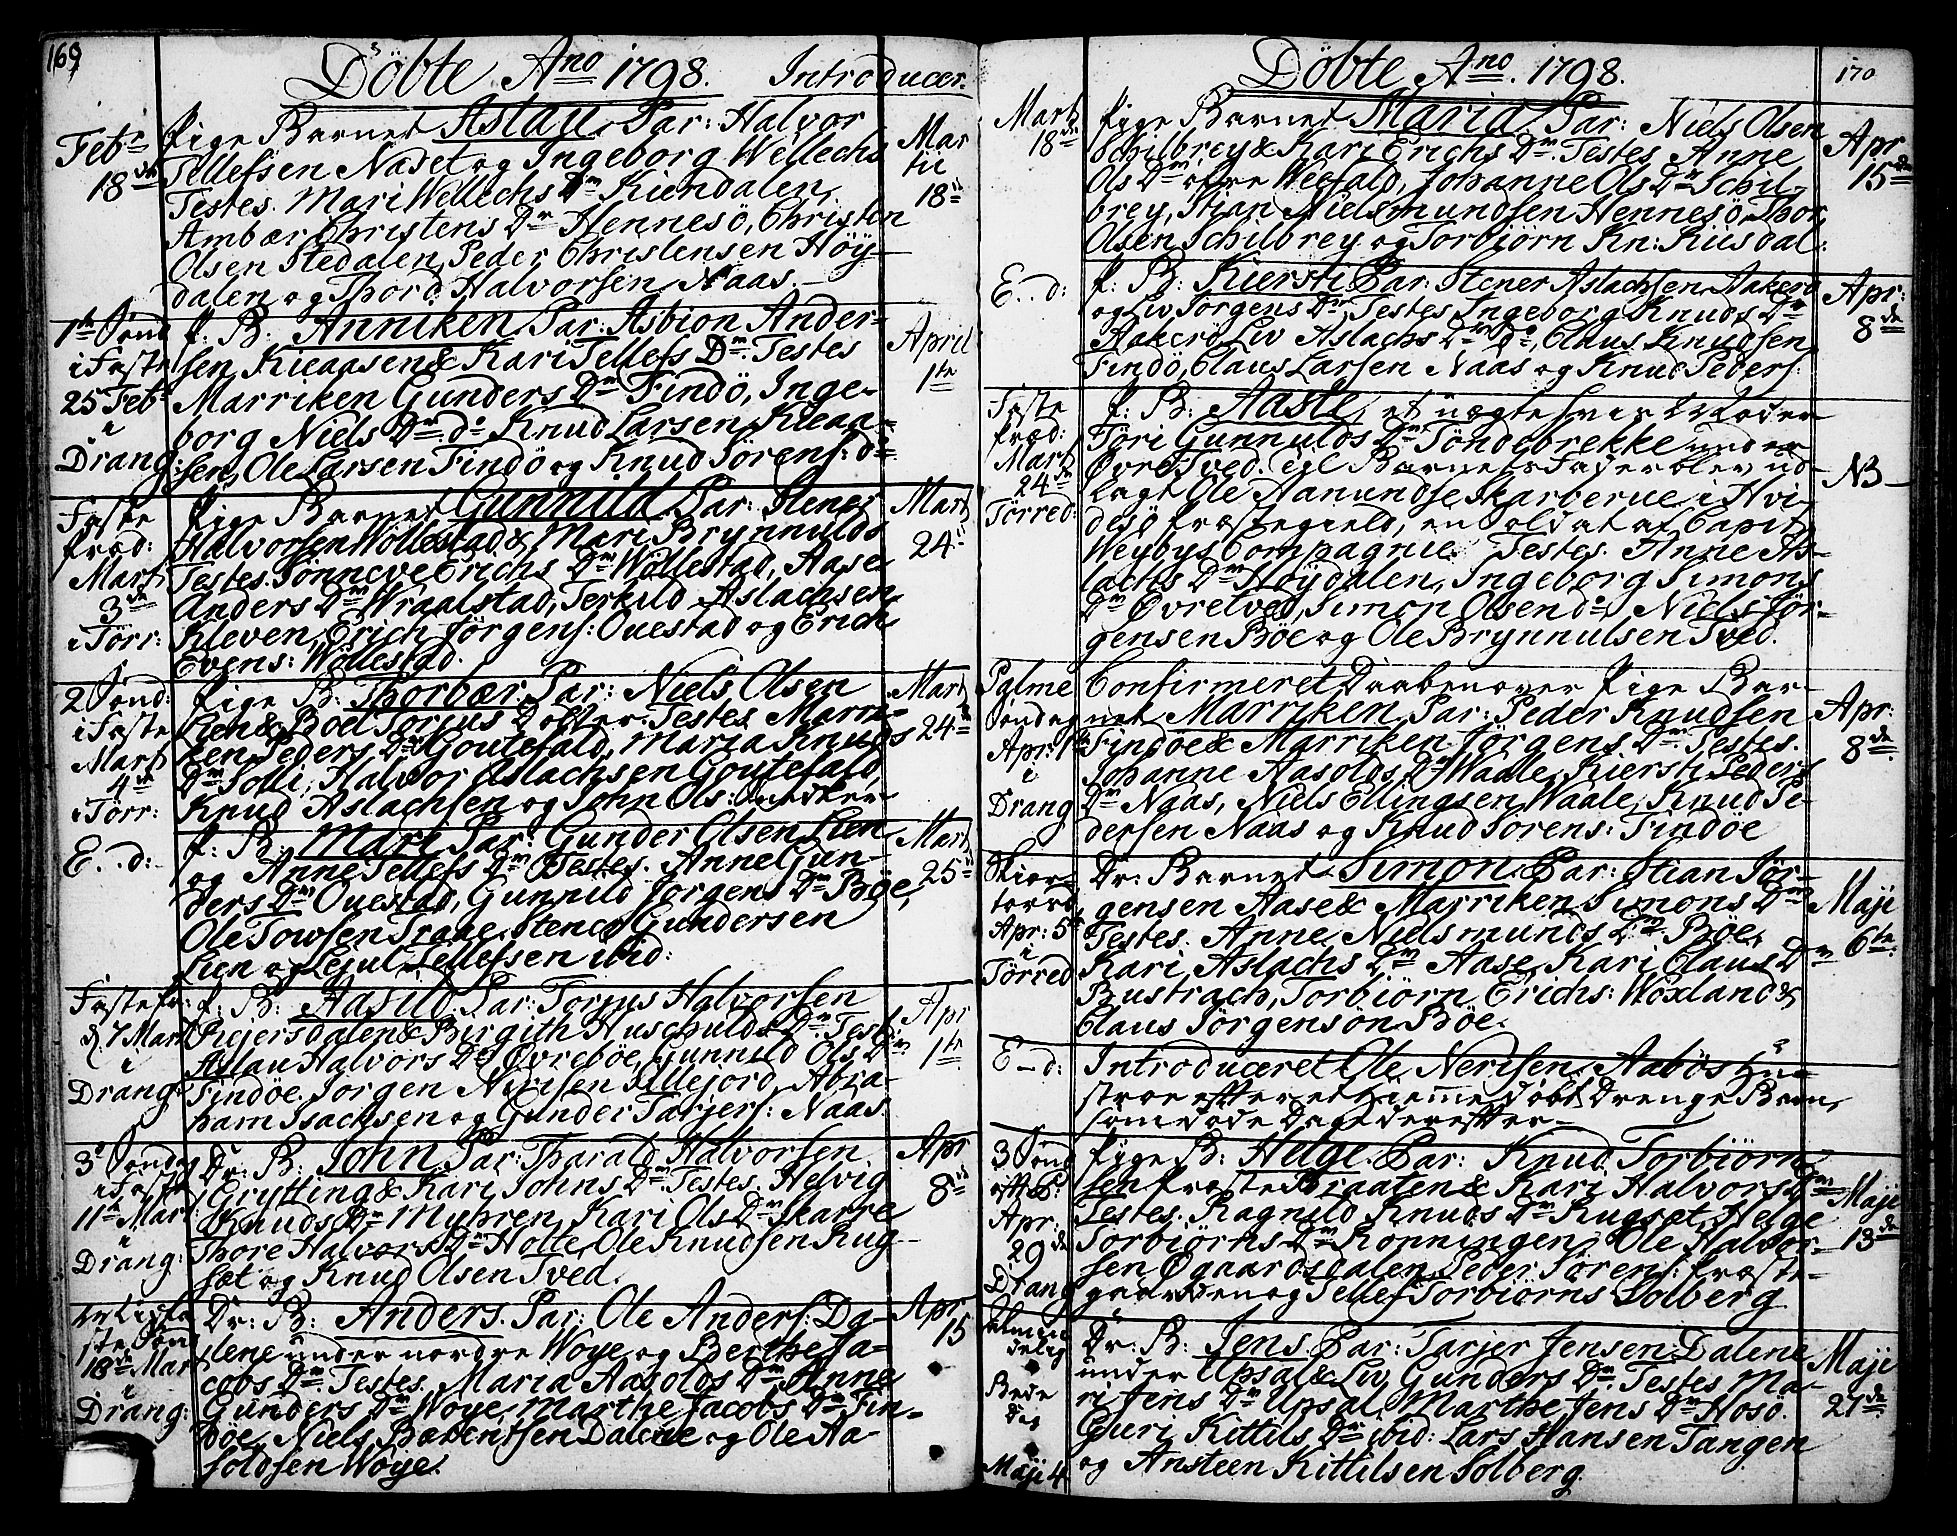 169
Döbte Ano 1798. Introducer.
Febr 18de
Pige Barnet Aslau, Par: Halvor
Tellefsen Naset og Ingeborg Wellechs
Testes. Mari Wellechs Dr Kiendalen,
Ambær Christens Dr Hennesö, Christen
Olsen Stedalen, Peder Christensen Höy-
dalen og Thord Halvorsen Naas.
Mar
tii
18
1te Sönd
i Faste
25 Febr
i
Drang:
P. B: Anniken, Par: Asbion Ander-
sen Kieaasen & Kari Tellefs Dr. Testes
Marriken Gunders Dr Findö, Inge-
borg Niels Dr do Knud Larsen Kieaa-
sen, Ole Larsen Findö og Knud Sörens: do
April
1te
Faste
Præd:
Mart
3de
i Törr:
Pige Barnet Gunnild Par: Stener
Halvorsen Wöllestad & Mari Brynnulds
Testes. Sönneve Erichs Dr Wöllestad, Aase
Anders Dr Wraalstad, Terkild Aslachsen
Kleven, Erich Jörgens: Ouestad og Erich
Evens: Wöllestad.
Mart
24
2 Sönd:
i Faste
Mart
4de
i Törr:
Pige B: Thorbær, Par: Niels Olsen
Lien & Boel Torjus Dotter. Testes. Marri-
ken Peders Dr Goutefald, Maria Knuds
Dr Solli, Halvor Aslachsen Goutefald,
Knud Aslachsen og John Ols:
Mart
24
E..d:
P. B: Mari Par: Gunder Olsen Lien
og Anne Tellefs Dr Testes. Anne Gun-
ders Dr Ouestad, Gunnild Jörgens Dr Böe,
Ole Towsen Trane, Stener Gundersen
Lien og Lejul Tellefsen ibid:
Mart
25
Fastepr:
d. 7 Mart
i
Drang:
P. B: Aasild Par: Torjus Halvorsen
Reiersdalen & Birgith Huschulds Dr. Test:
Aslau Halvors Dr Övreböe, Gunnild Ols Dr
Findöe. Jörgen Nerisen Sillejord, Abra-
ham Isachsen og Gunder Tarjers: Naas.
Apr
1te
3 Sönd
i Faste
11te Mart
i
Drang:
Dr: B: John, Par: Tharald Halvorsen
Grytting & Kari Johns Dr Testes. Helvig
Knuds Dr Myhren, Kari Ols Dr Skarre
Thore Halvors Dr Holte, Ole Knudsen Rug-
sæt og Knud Olsen Tved.
Apr
8
ste Sönd
18de Mar
i
Drang:
Dr: B: Anders. Par: Ole Anders: Da-
lene under nordre Woye og Berthe Ja-
cobs Dr. Testes. Maria Aasolds Dr, Anne
Gunders Dr Woye, Marthe Jacobs Dr Fin-
döe, Niels Barentsen Dalene og Ole Aa-
soldsen Woye.
Apr
15
170
Döbte Ano. 1798.
Mart
18de
Pige Barnet Maria, Par: Niels Olsen
Schilbrey & Kari Erichs Dr. Testes. Anne
Ols Dr övre Weefald, Johanne Ols Dr Schil-
brey, Stian Nielsmundsen Hennesö, Thor
Olsen Schilbrey og Torbiörn Kn: Kiisdal:
Apr
15de
E..d:
P. B: Kiersti Par: Stener Aslachsen Aakerö
og Liv Jörgens Dr, Testes Ingeborg Knuds Dr
Aakerö, Liv Aslachs Dr do, Claus Knudsen
Findö, Claus Larsen Naas og Knud Peders:
Apr:
8de
Faste
Præd:
Mart
24de
Törred:
P: B: Aaste, et uægte hvis Moder
Töri Gunnulds Dr Töndebrekke under
Övre Tved. til Barnets Fader blev ud-
lagt Ole Aanundse Skarberue i Hvi-
desö Præstegield, en Soldat af Capit.
Weybys Compagnie. Testes. Anne As-
lachs Dr Höydalen, Ingeborg Simons
Dr Övretved, Simon Olsen do, Niels Jör-
gensen Böe og Ole Brynnulsen Tved.
NB
Palme
Söndag
Apr: 1te
i
Drang
Confirmeret Daaben over Pige Bar-
net Marriken, Par: Peder Knudsen
Findöe & Marriken Jörgens Dr. Testes.
Johanne Aasolds Dr Waale, Kiersti Peders
Dr Naas, Niels Ellingsen Waale, Knud Pe-
dersen Naas og Knud Sörens: Findöe
Apr:
8de
Skier-
torsd
Apr: 5te
i
Törred
Dr: Barnet Simon Par: Stian Jör-
gensen Aase & Marriken Simons Dr
Testes. Anne Nielsmunds Dr Böe,
Kari Aslachs Dr Aase, Kari Claus Dr
Bustrach, Torbiörn Erichs: Woxland &
Claus Jörgensön Böe.
Maji
6te
E_d:
Introduceret Ole Nerisen Aabös Hu-
stroe efter et Hiemme döbt Drenge Barn,
som döde Dagen derefter.
3 Sönd
eft. P:
Apr:
29de
Drang
Pige B: Helge. Par: Knud Torbiörn-
sen Præste Braaten & Kari Halvors Dr
Testes. Ragnild Knuds Dr Rugset, Helge
Torbiörns Dr Ronningen, Ole Halvor-
sen Ögaardsdalen, Peder Sörens: Præste-
gaarden og Tellef Torbiörns Solberg
Maji
13de
Almin
delig
Bede
Dag
Maji 4
Dr: B: Jens Par: Tarjer Jensen Dalene
under Upsal & Liv Gunders Dr. Testes Ma-
ri Jens Dr Upsal, Marthe Jens Dr Hosö.
Guri Kittils Dr ibid: Lars Hansen Tangen
og Ansteen Kittilsen Solberg.
Maji
27de